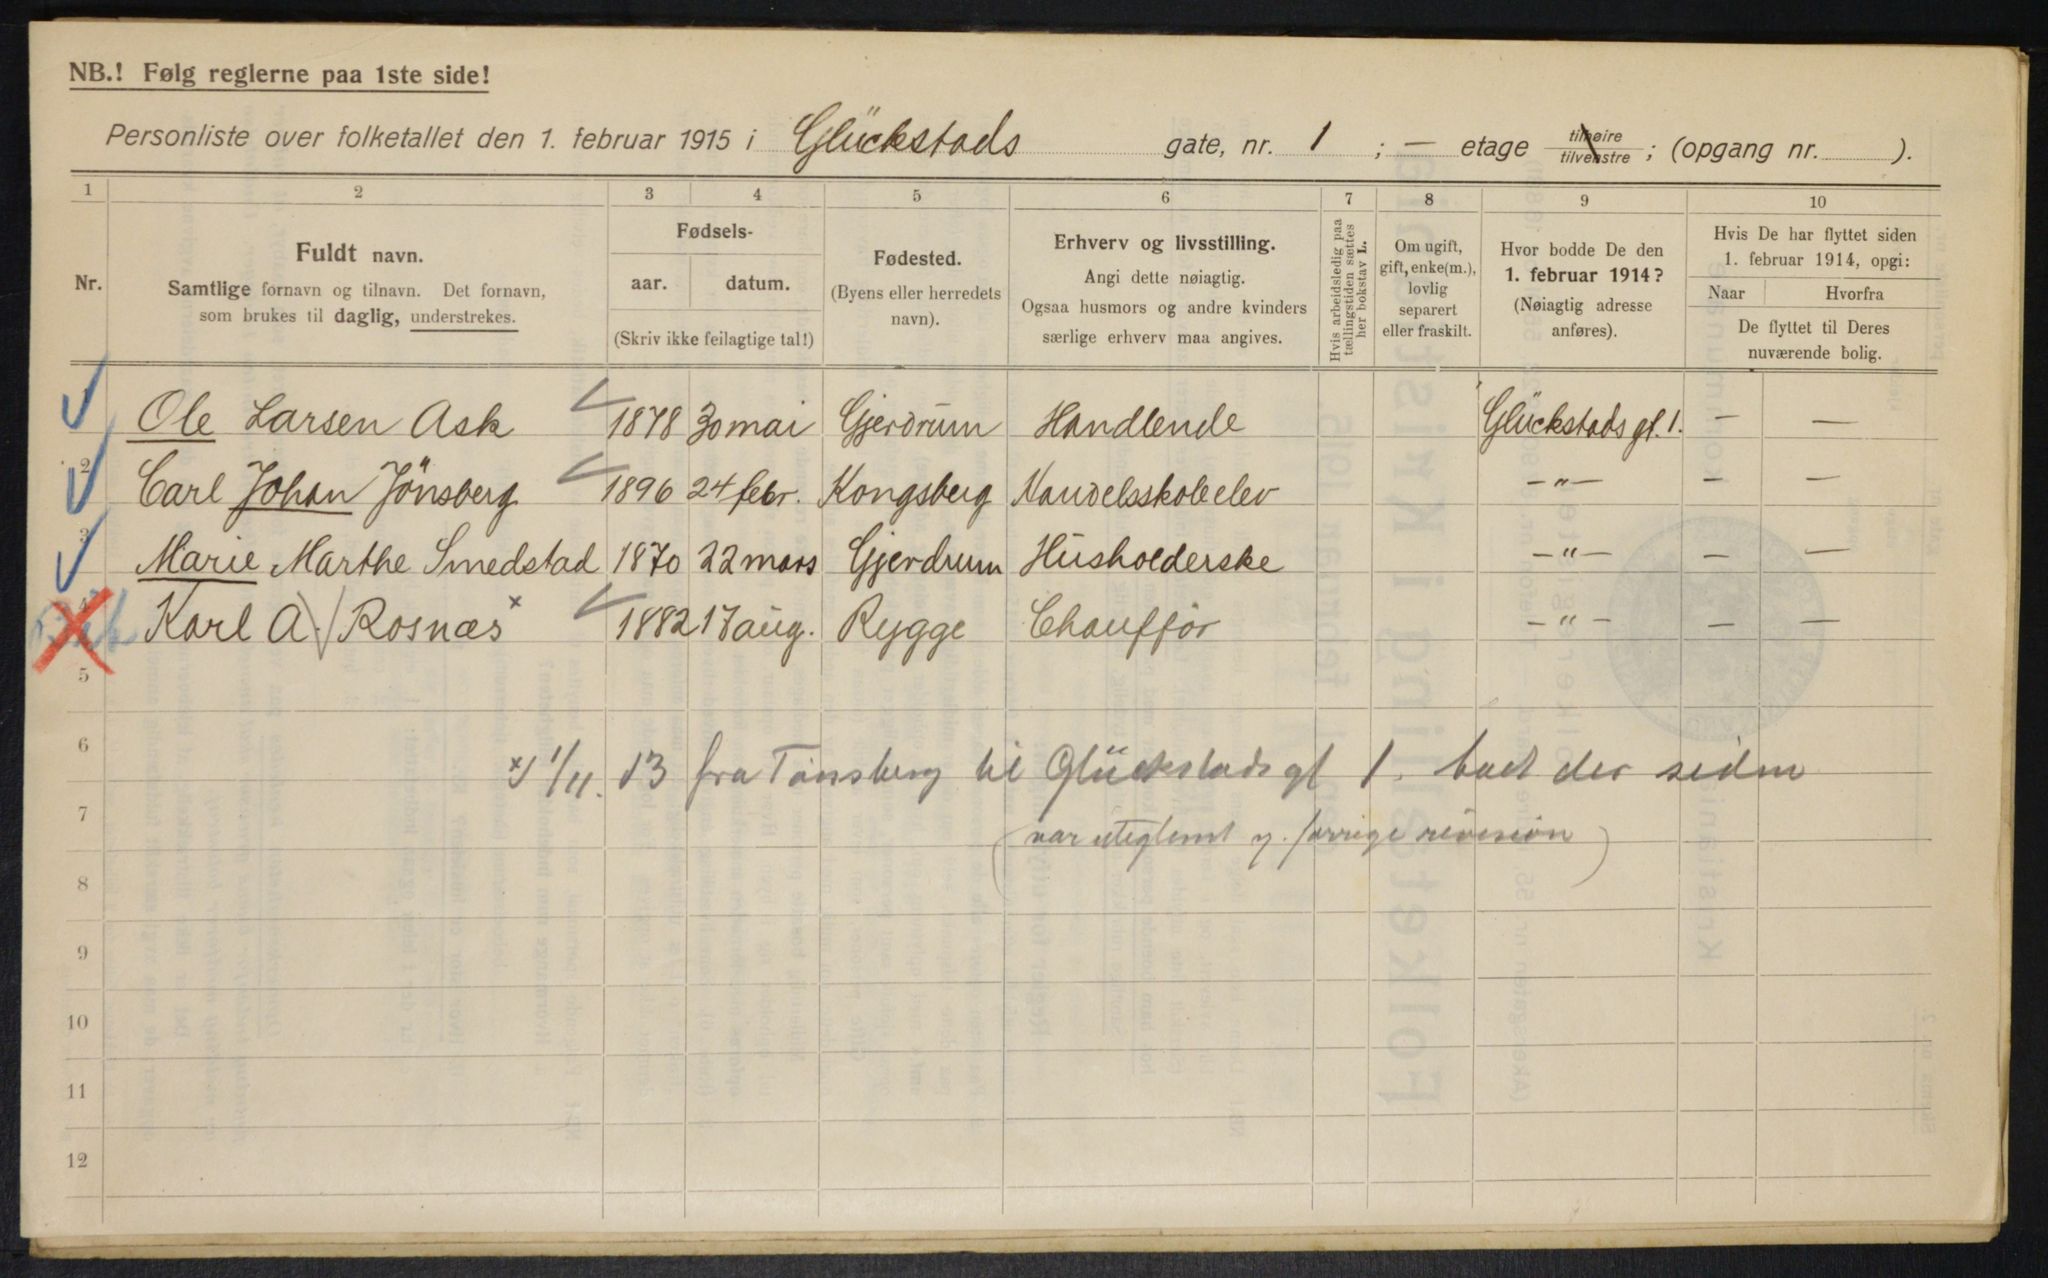 NB.! Følg reglerne paa 1ste side!
Personliste over folketallet den 1. februar 1915 i Glückstads gate, nr. 1 ; — etage tilhøire tilvenstre ; (opgang nr. ).
1 2 3 4 5 6 7 8 9 10
Nr.
Fuldt navn.
Samtlige fornavn og tilnavn. Det fornavn,
som brukes til daglig, understrekes.
Fødsels-
aar. datum.
(Skriv ikke feilagtige tal!)
Fødested.
(Byens eller herredets
navn).
Erhverv og livsstilling.
Angi dette nøiagtig.
Ogsaa husmors og andre kvinders
særlige erhverv maa angives.
Hvis arbeidsledig paa
tællingstiden sættes
her bokstav L.
Om ugift,
gift, enke(m.),
lovlig
separert
eller fraskilt.
Hvor bodde De den
1. februar 1914?
(Nøiagtig adresse
anføres).
Hvis De har flyttet siden
1. februar 1914, opgi:
Naar Hvorfra
De flyttet til Deres
nuværende bolig.
1 Ole Larsen Ask 1878 30 mai Gjerdrum Handlende Glückstads gt. 1. — —
2 Carl Johan Jönsberg 1896 24 febr. Kongsberg Handelsskoleelev —"— — —
3 Marie Marthe Smedstad 1870 22 mars Gjerdrum Husholderske —"— — —
4 Karl A. Rosnæs x 1882 17 aug. Rygge Chauffør —"— — —
5
6
x) 1/11. 13 fra Tønsberg til Glückstads gt 1. boet der siden
7
(var uteglemt v. forrige revision)
8
9
10
11
12